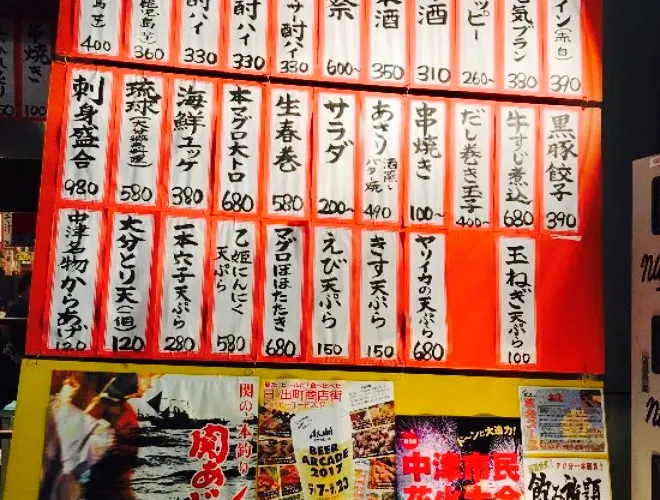 400
芋 360
酎ハイ 330
酎ハイ 330
サワー酎ハイ 330
祭 600~
酒 350
酒 310
ッピー 260~
電気ブラン 380
イン(赤白) 390
串焼き 100
刺身盛合 980
琉球 (大分郷土料理) 580
海鮮ユッケ 380
本マグロ大トロ 680
生春巻 580
サラダ 200~
あさり 酒蒸し バター焼 490
串焼き 100~
だし巻き玉子 400~
牛すじ煮込 680
黒豚餃子 390
中津名物からあげ 120
大分とり天(1個) 120
一本穴子天ぷら 280
乙姫にんにく天ぷら 580
マグロほほたたき 680
えび天ぷら 150
きす天ぷら 150
ヤリイカの天ぷら 680
玉ねぎ天ぷら 100
関の一本釣り
関あじ
日ノ出町商店街
Asahi
BEER
ARCADE
2017
ドーンと大迫力!
中津市民
花火大会